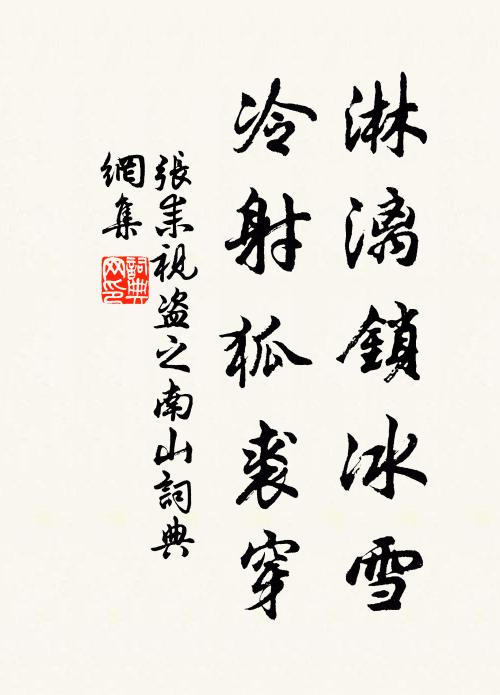 淋漓鎖冰雪
冷射狐裘穿
張耒視盜之南山詞典
網集
詞典
网印